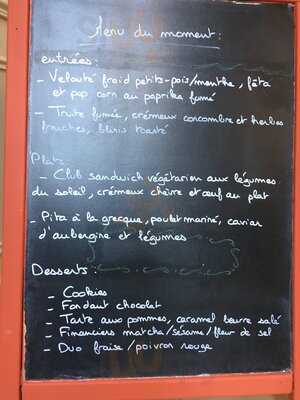 Menu du moment :
entrées :
- Velouté froid petits-pois/menthe, féta
et pop corn au paprika fumé
- Truite fumée, crémeux concombre et herbes
fraîches, blinis toasté
Plats
- Club sandwich végétarien aux légumes
du soleil, crémeux chèvre et œuf au plat
- Pita à la grecque, poulet mariné, caviar
d'aubergine et légumes
Desserts :
- Cookies
- Fondant chocolat
- Tarte aux pommes, caramel beurre salé
- Financiers matcha/sésame/fleur de sel
- Duo fraise/poivron rouge